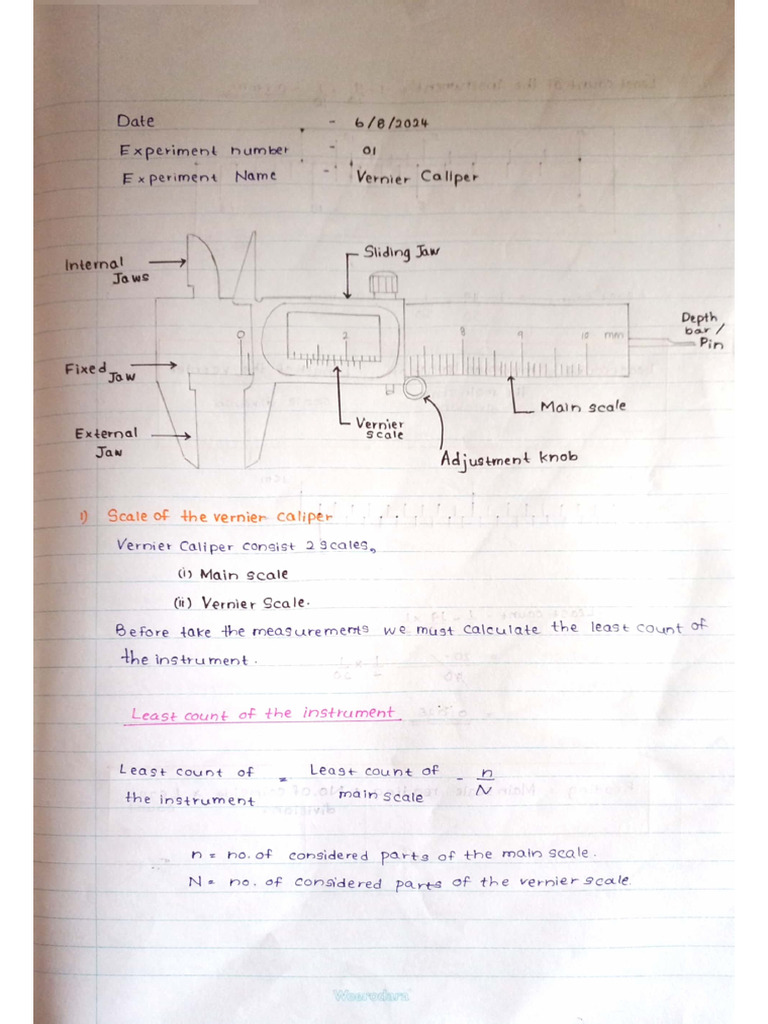 Date - 6/8/2024
Experiment number - 01
Experiment Name - Vernier Caliper
Internal Jaws
Sliding Jaw
Depth bar / Pin
0 2 8 9 10 mm
Fixed Jaw
Main scale
Vernier scale
External Jaw
Adjustment knob
1) Scale of the vernier caliper
Vernier Caliper consist 2 scales,
(i) Main scale
(ii) Vernier Scale.
Before take the measurements we must calculate the least count of
the instrument.
Least count of the instrument
Least count of the instrument = Least count of main scale - n/N
n = no. of considered parts of the main scale.
N = no. of considered parts of the vernier scale.
Weerodara